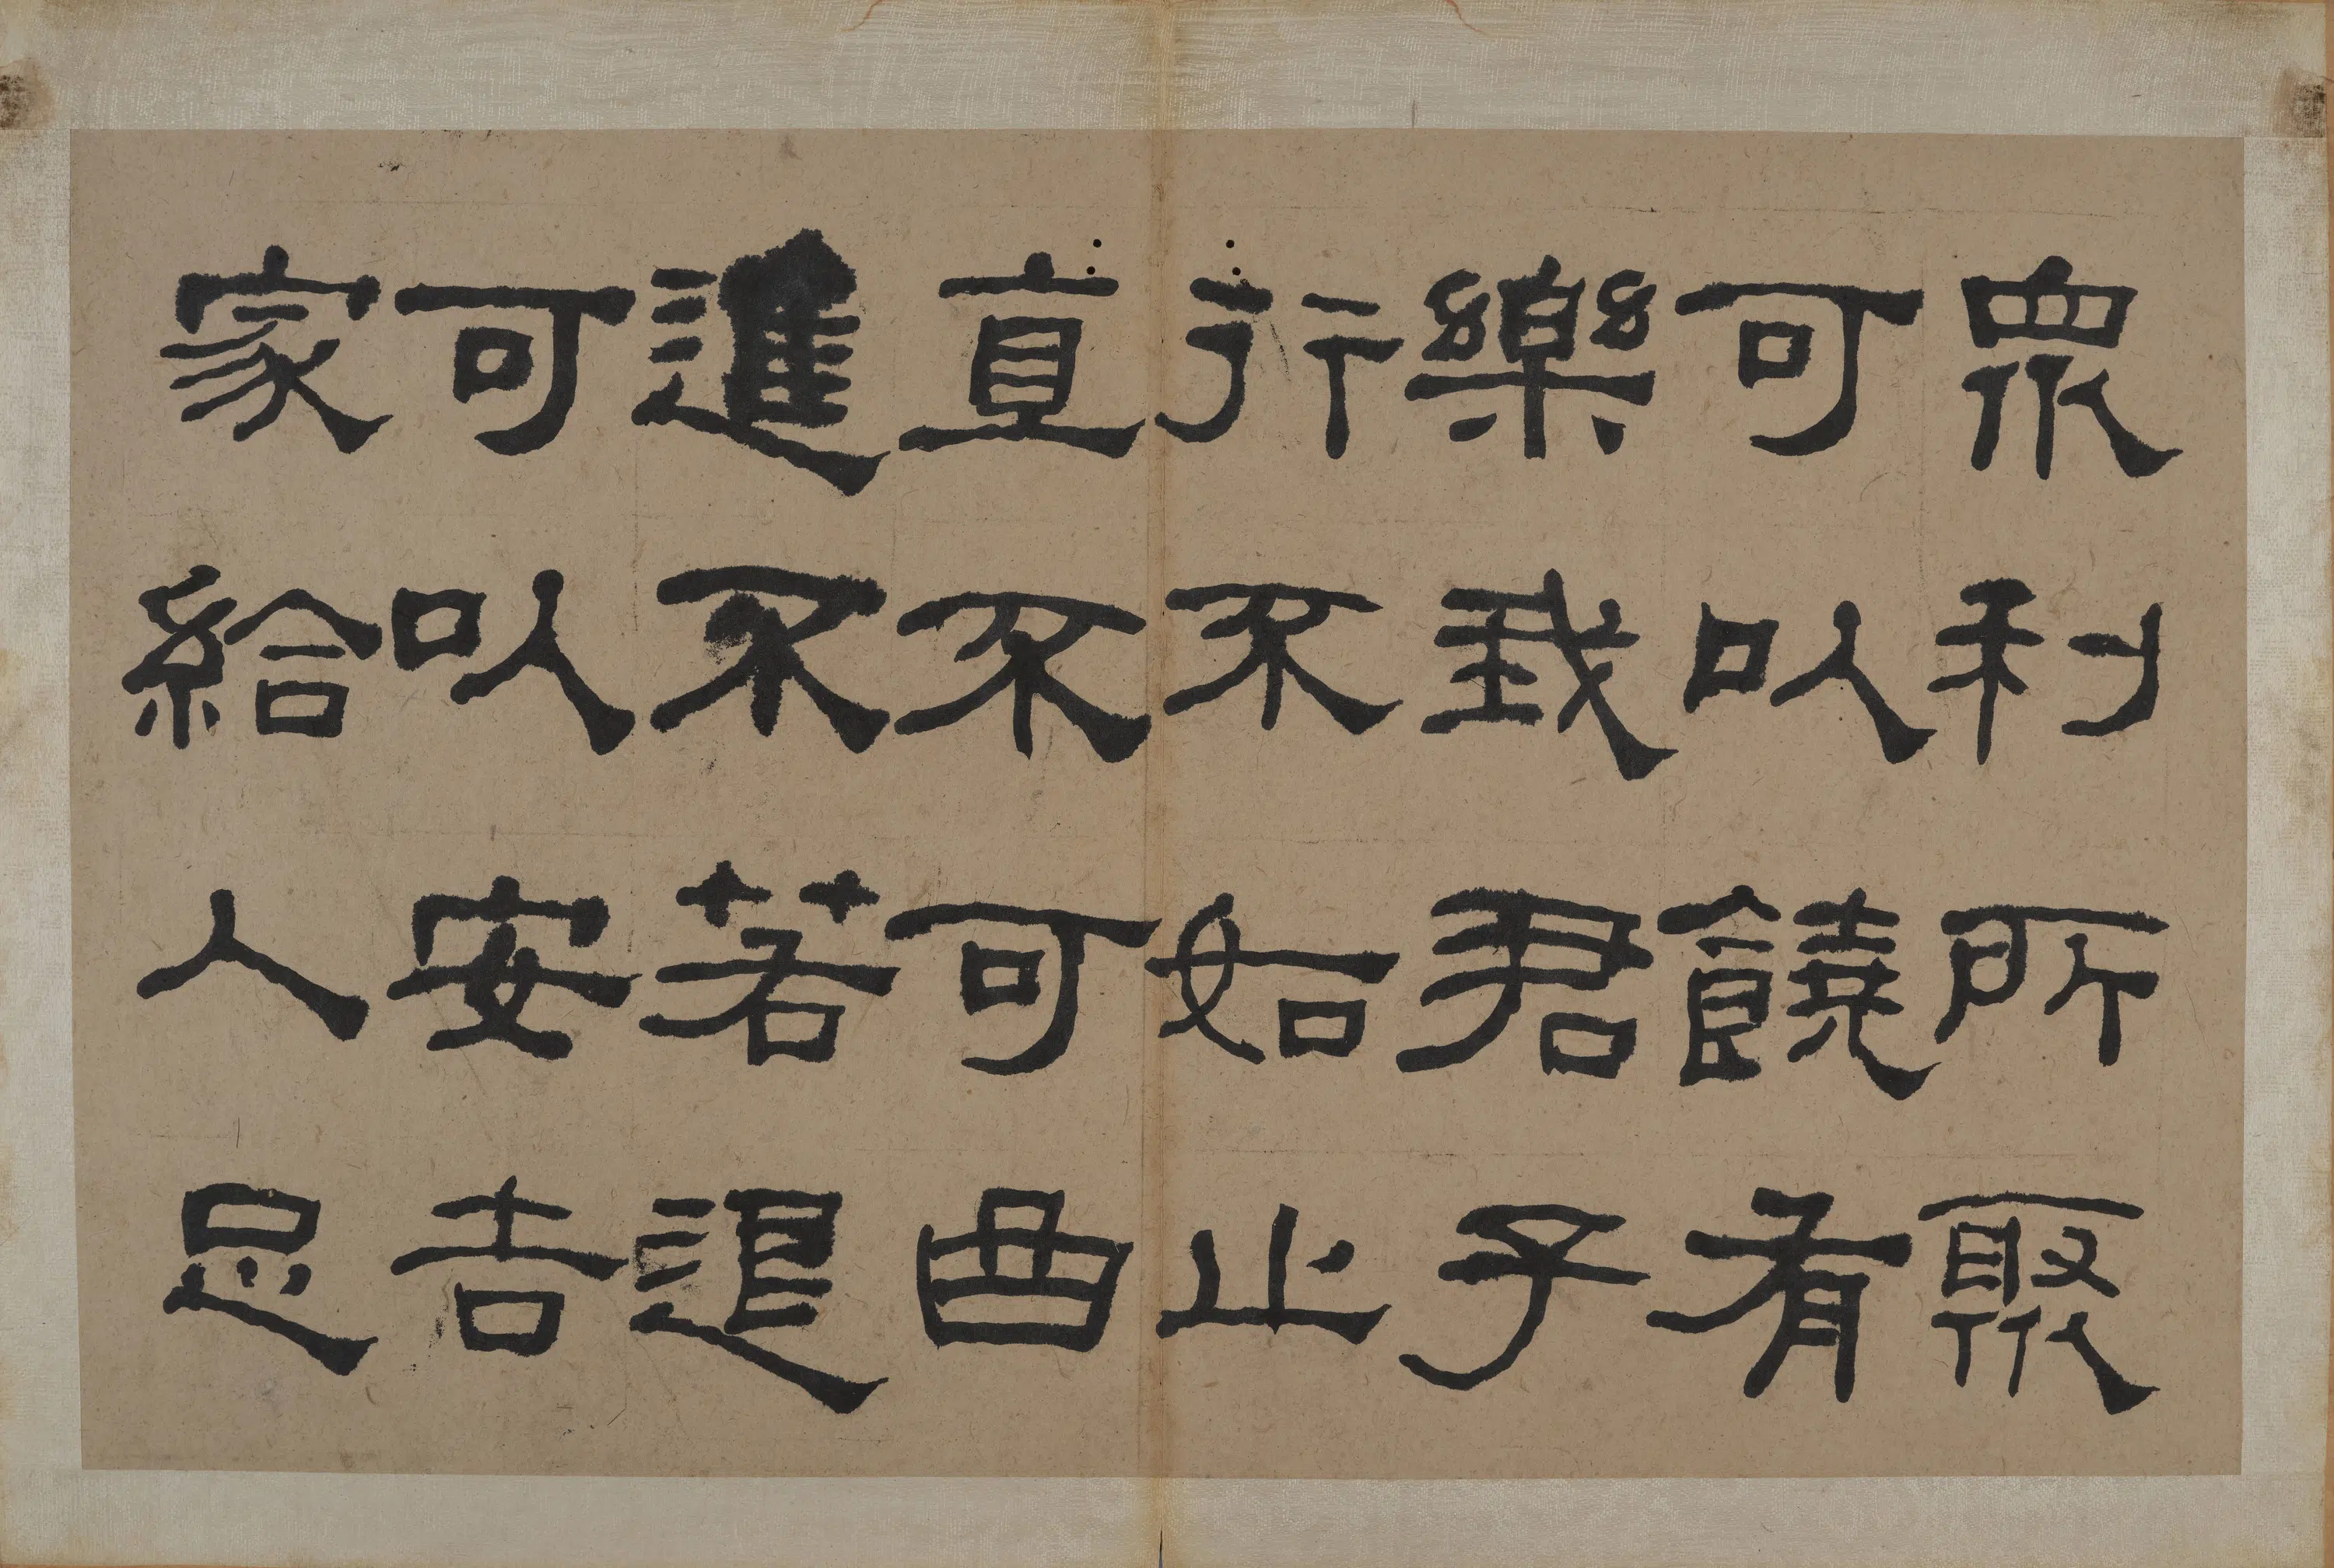 眾利所聚
可以饒有
樂我君子
行不如止
直不可曲
進不若退
可以安吉
家給人足